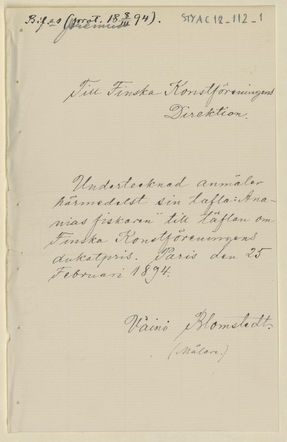 Bifas (prot. 18 8/III 94). STYAC 12-112-1
Till Finska Konstföreningens
Direktion.
Undertecknad anmäler
härmedelst sin tafla: "Ana-
nias fiskaren" till täflan om
Finska Konstföreningens
dukatpris. Paris den 25
Februari 1894.
Väinö Blomstedt.
(Målare.)